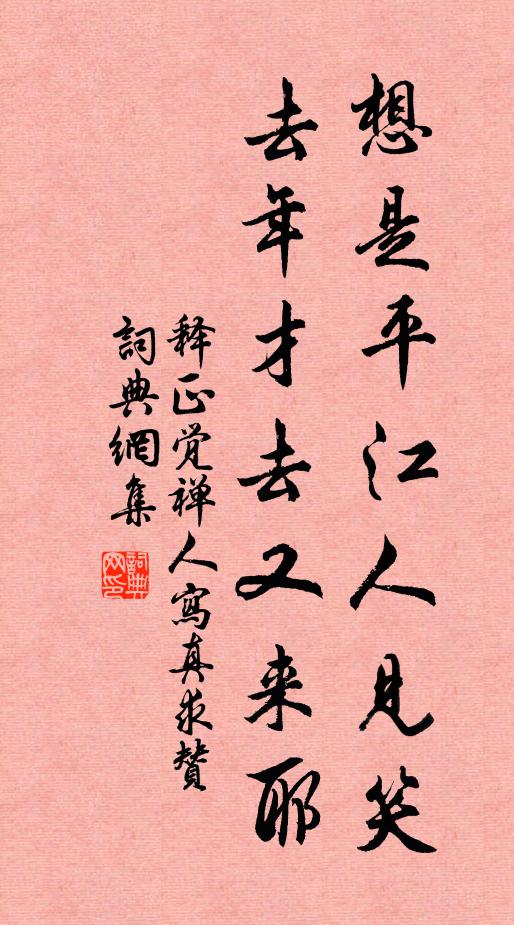 想是平江人見笑
去年才去又来耶
释正觉禅人寫真求賛
詞典網集
詞典网印